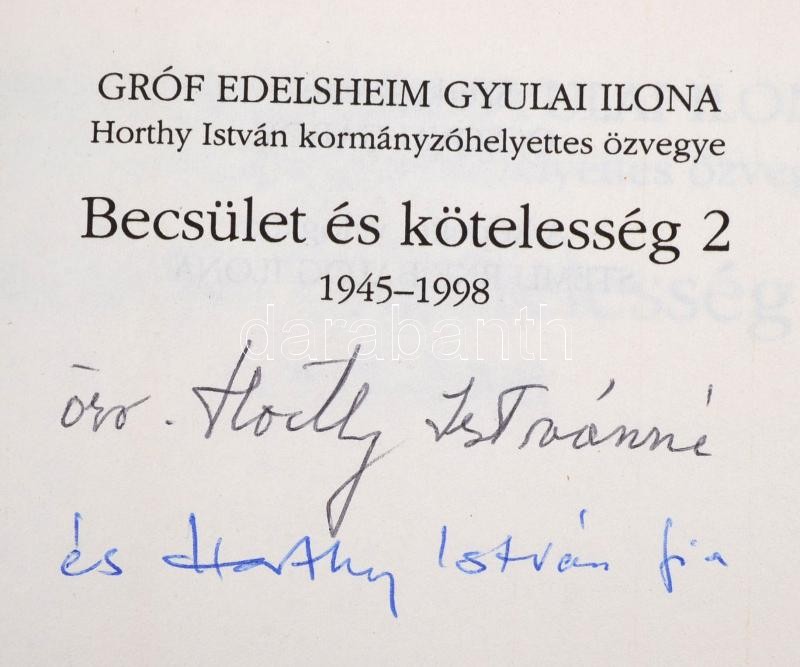 GRÓF EDELSHEIM GYULAI ILONA
Horthy István kormányzóhelyettes özvegye
Becsület és kötelesség 2
1945–1998
darabanth
özv. Horthy Istvánné
és Horthy István fia